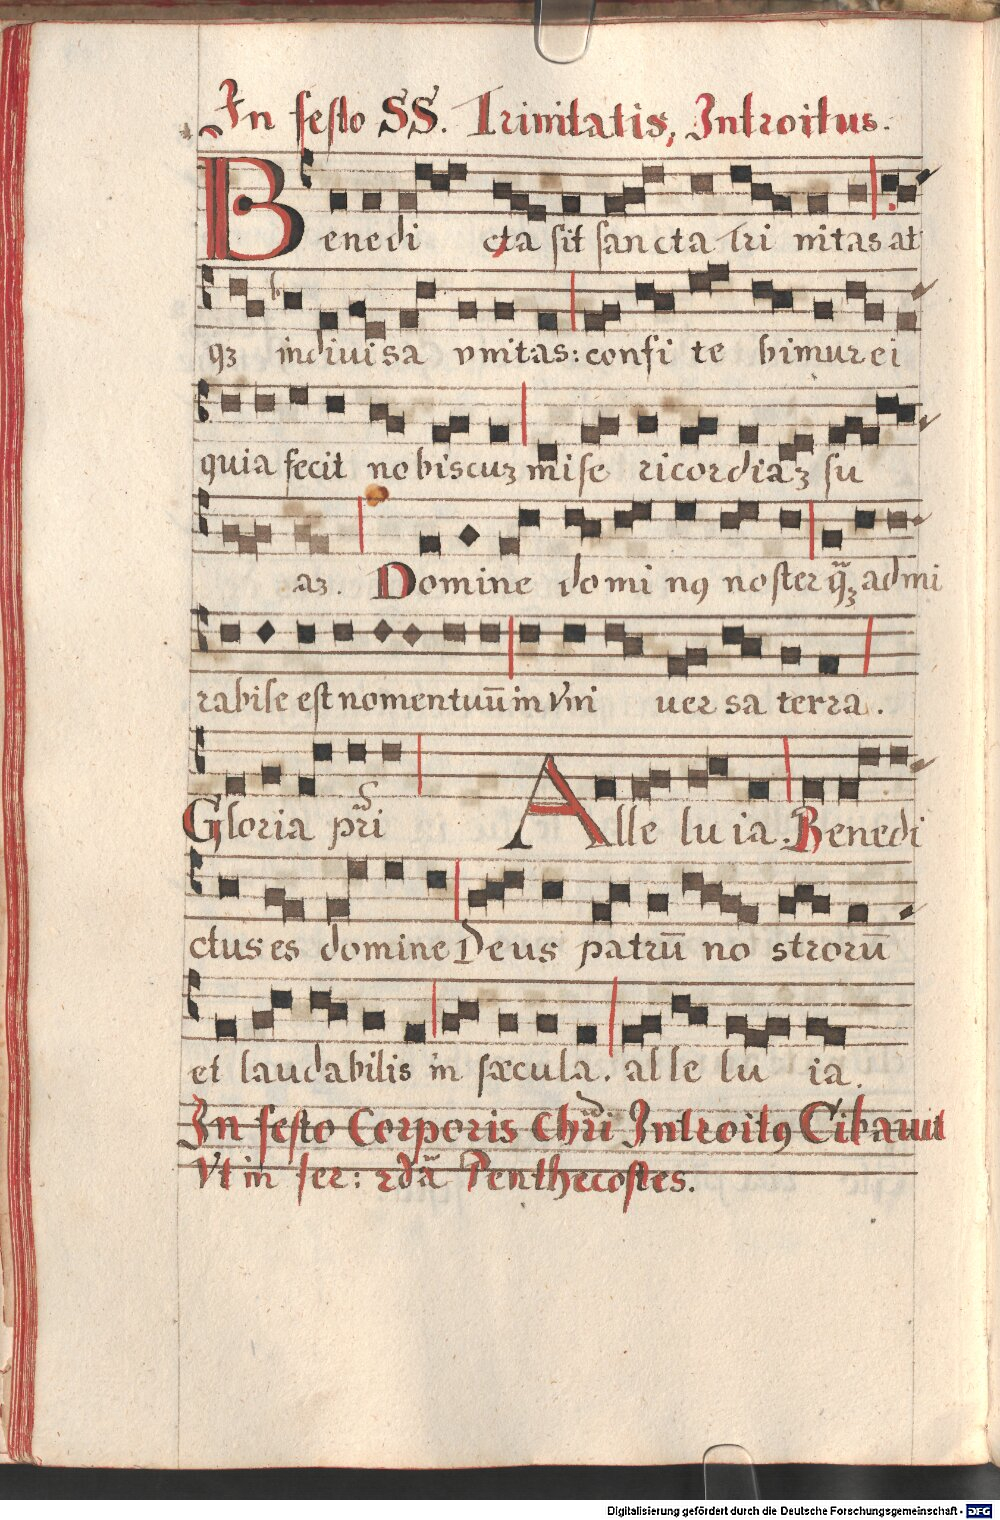 In festo SS. Trinitatis, Introitus.
Benedi cta sit sancta Tri nitas at
qꝫ indiuisa vnitas: confi te bimur ei
quia fecit nobiscuꝫ mise ricordiaꝫ su
aꝫ. Domine domi nꝯ noster qꝫ̃ admi
rabile est nomen tuū in Vni uersa terra.
Gloria pr̃i Alle lu ia. Benedi
ctus es domine Deus patrū no strorū
et laudabilis in sæcula. alle lu ia.
In festo Corporis Chr̃i Introitꝯ Cibauit
Vt in fer: 2dã Penthecostes.
Digitalisierung gefördert durch die Deutsche Forschungsgemeinschaft - DFG